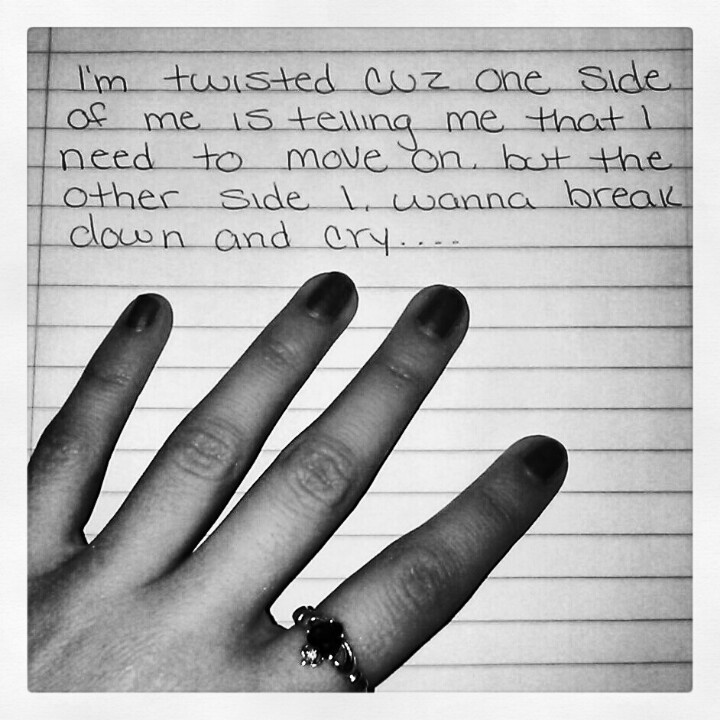 I'm twisted cuz one side
of me is telling me that I
need to move on. but the
other side I. wanna break
down and cry....